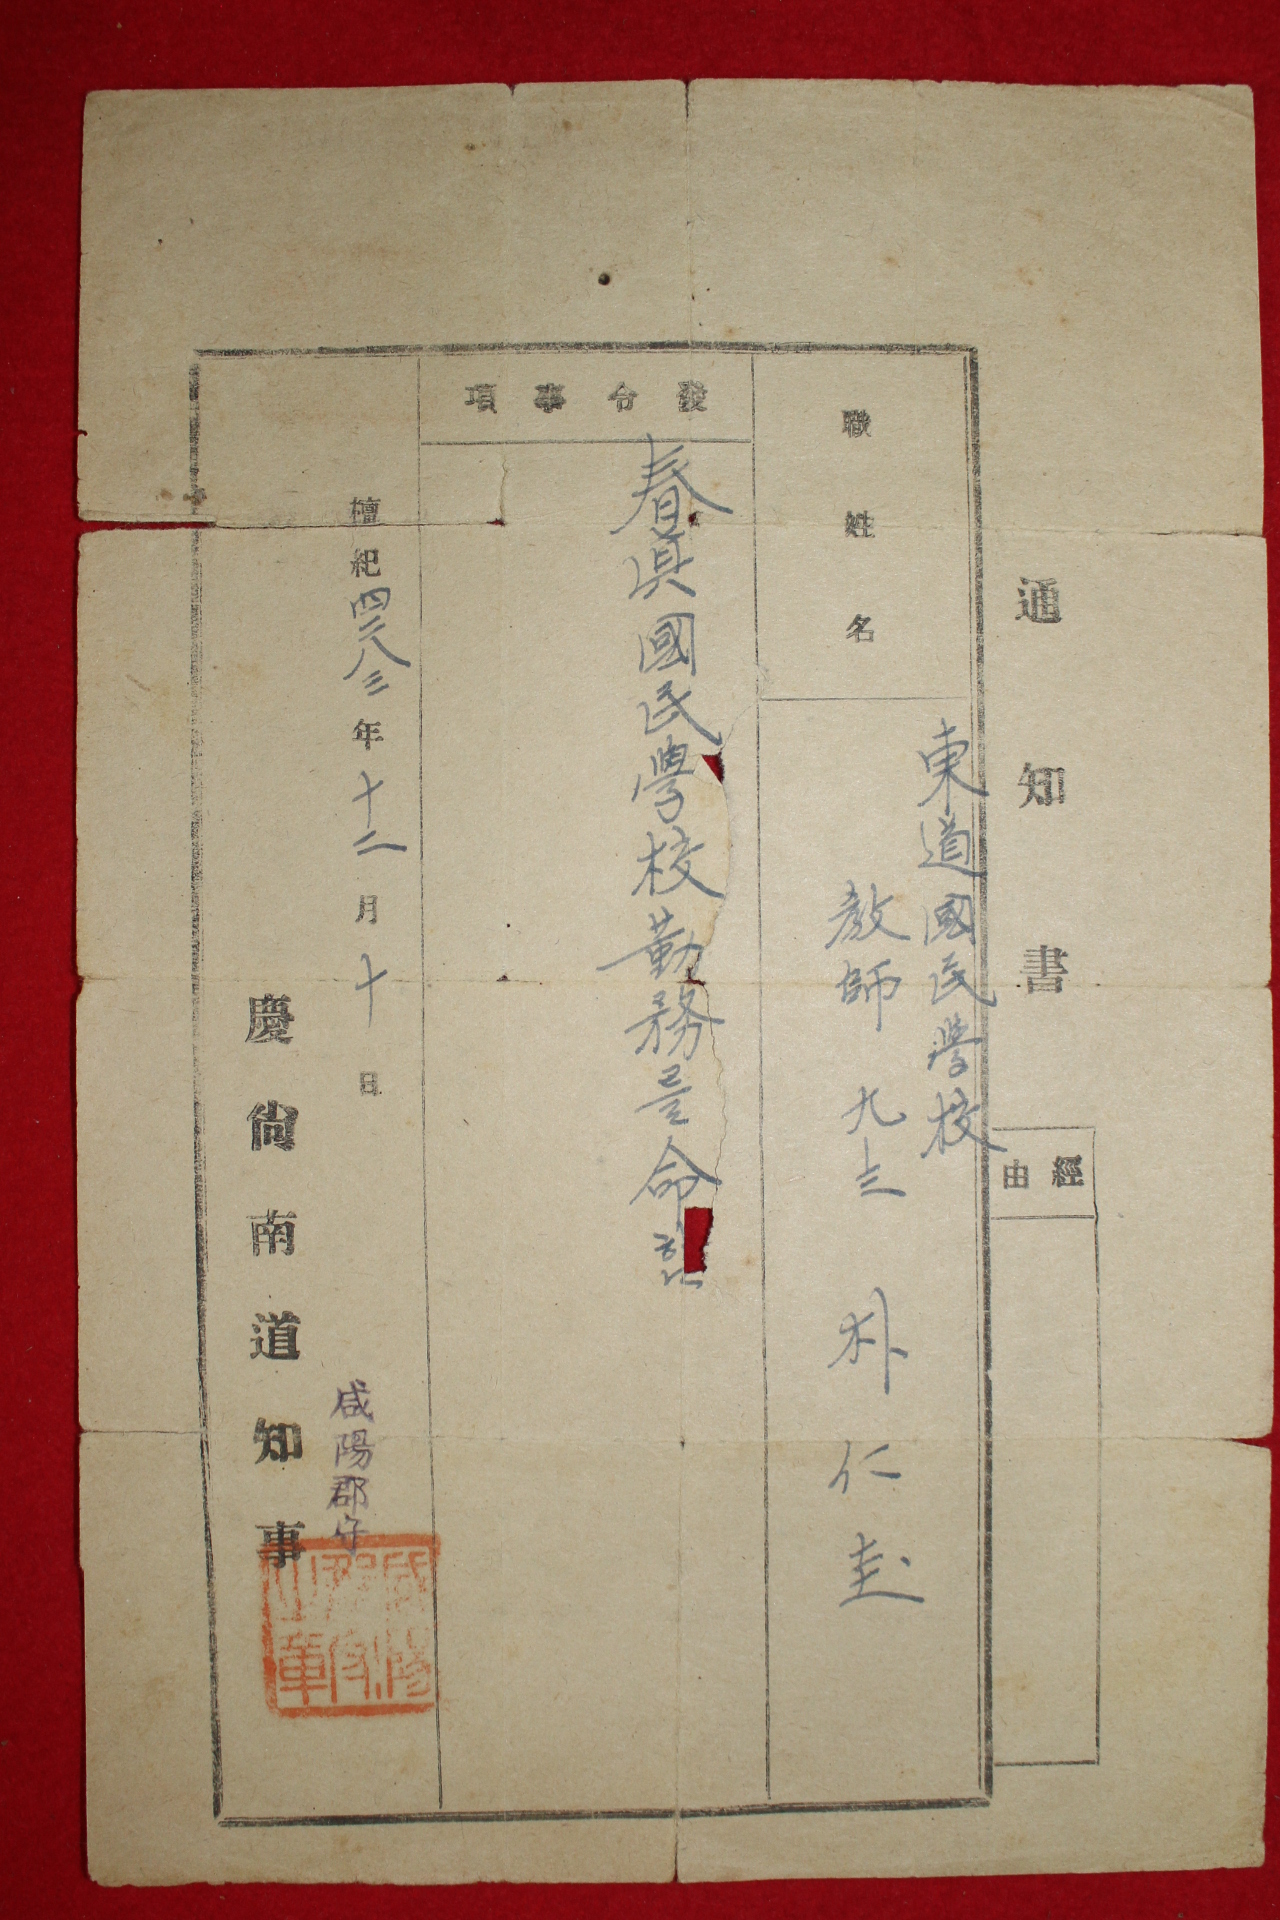 通知書
經由
職姓名
東道國民學校
敎師 朴仁
發令事項
春眞國民學校勤務를命함
檀紀四二八三年十二月十日
慶尙南道知事
咸陽郡守
咸陽郡守之章